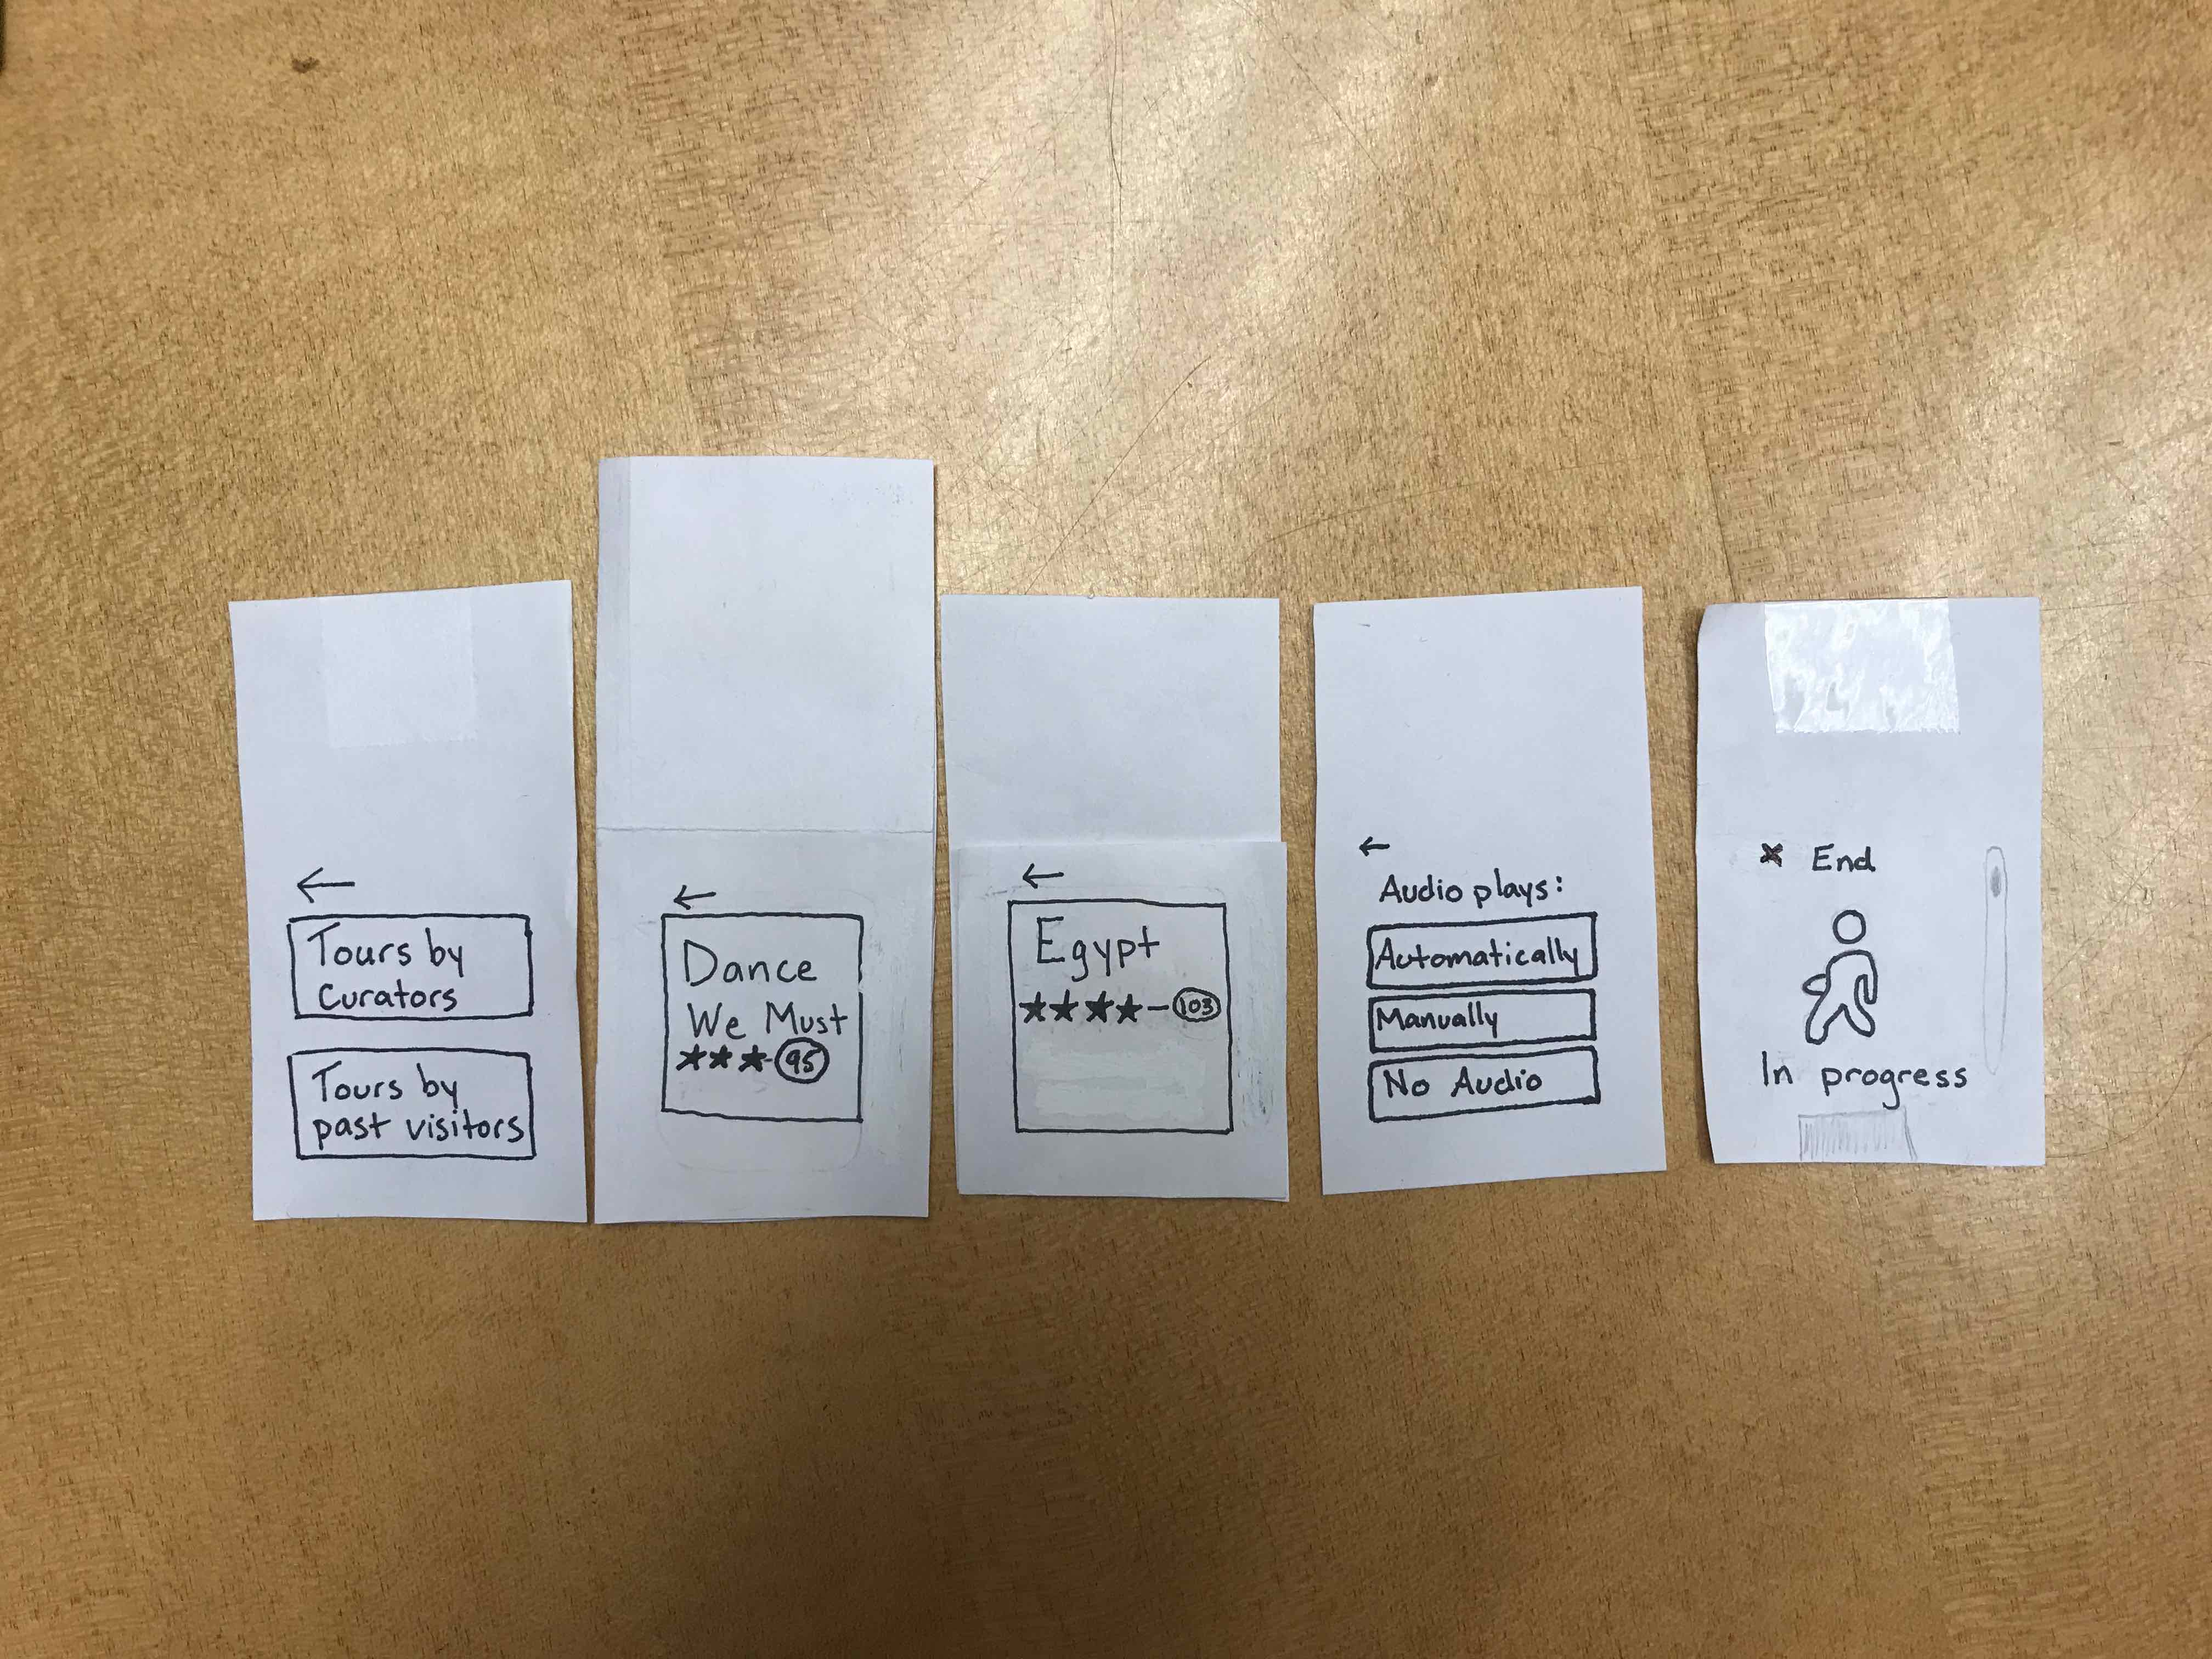 ←
Tours by
Curators
Tours by
past visitors
←
Dance
We Must
★★★-95
←
Egypt
★★★★-103
←
Audio plays:
Automatically
Manually
No Audio
x End
In progress